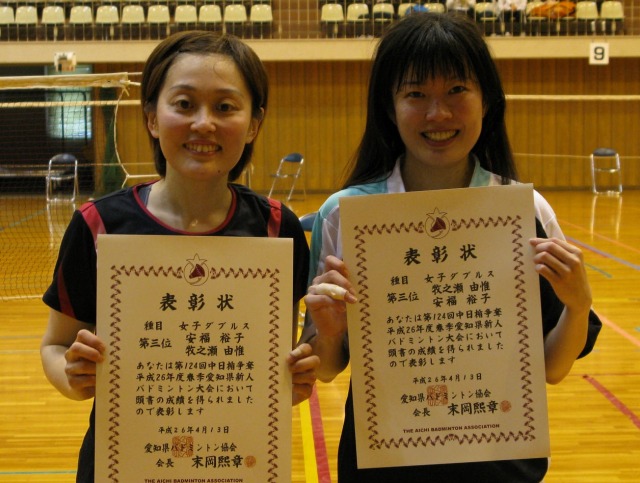 9
表彰状
種目 女子ダブルス
第三位 安福 裕子
牧之瀬 由惟
あなたは第124回中日楯争奪
平成26年度春季愛知県新人
バドミントン大会において
頭書の成績を得られました
ので表彰します
平成26年4月13日
愛知県バドミントン協会
会長 末岡熙章
THE AICHI BADMINTON ASSOCIATION
表彰状
種目 女子ダブルス
牧之瀬 由惟
第三位 安福 裕子
あなたは第124回中日楯争奪
平成26年度春季愛知県新人
バドミントン大会において
頭書の成績を得られました
ので表彰します
平成26年4月13日
愛知県バドミントン協会
会長 末岡熙章
THE AICHI BADMINTON ASSOCIATION